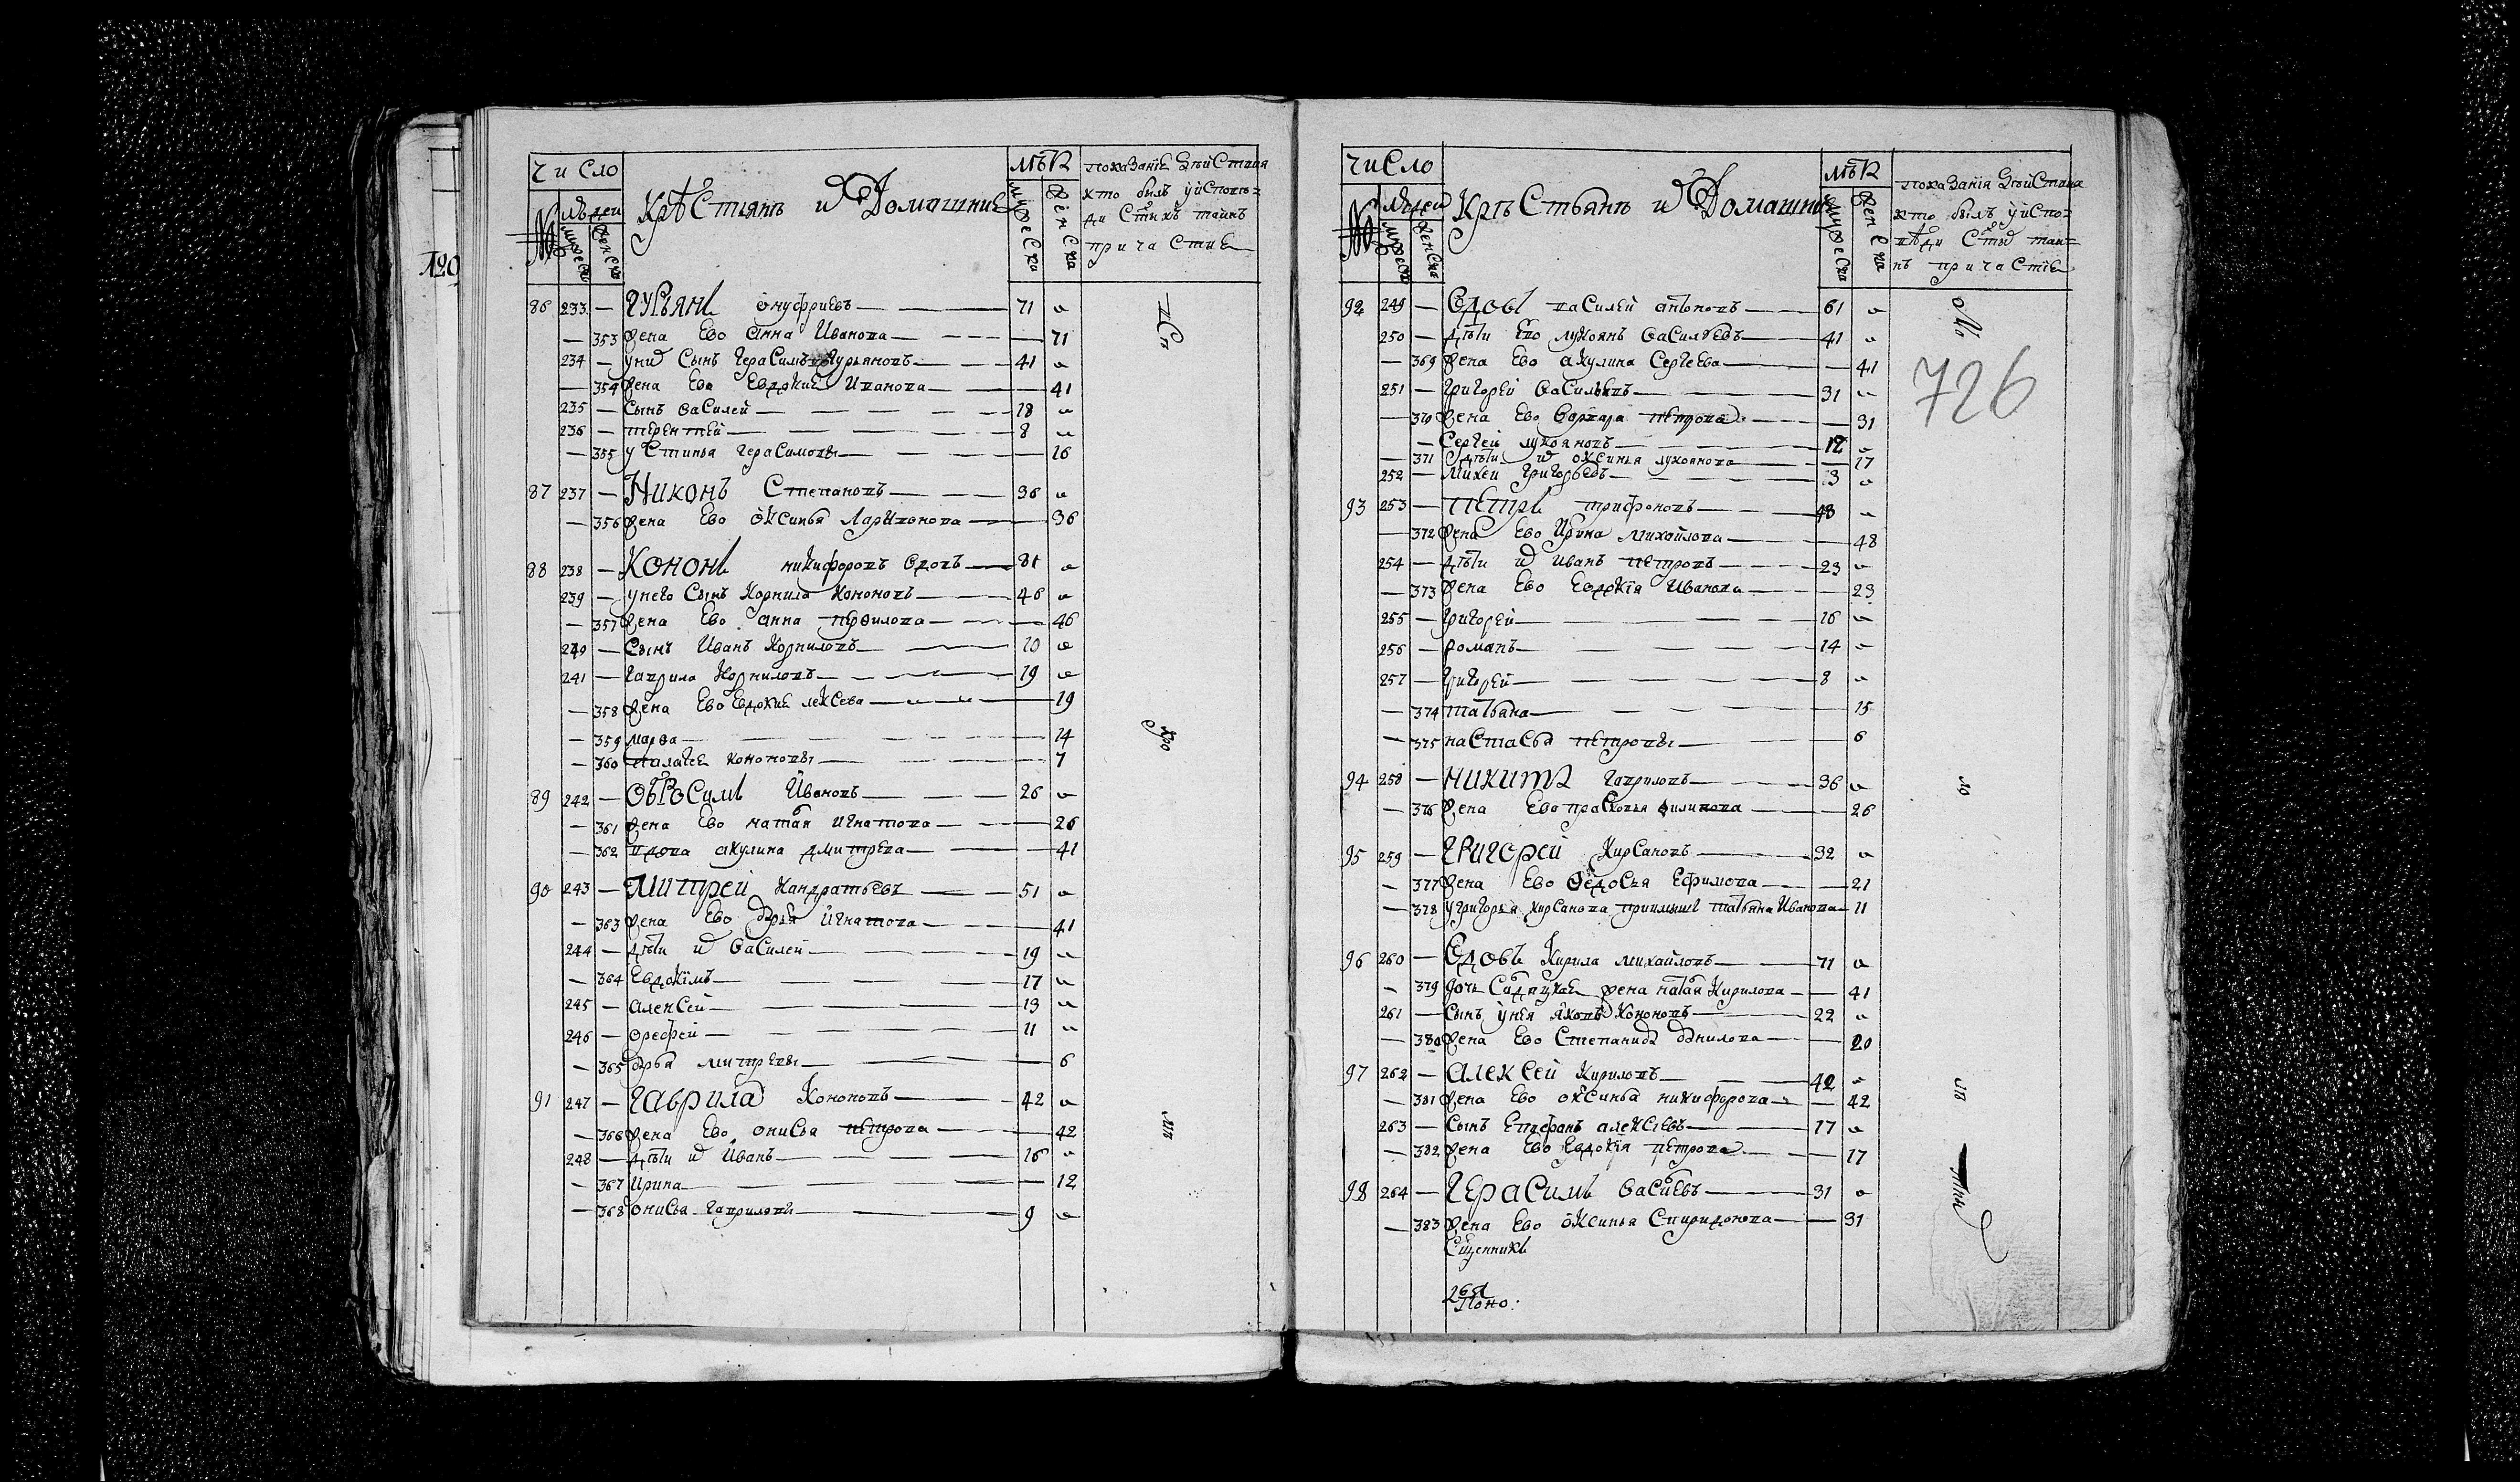 120
число
№
людей
мужеска
женска
Крестьянъ и Домашние
лѣта
мужеска
женска
показание действия
кто былъ у исповѣ=
ди Стыхъ таинъ
причастие
86 233 — Гурьянъ Онуфриевъ — 71
— 353 жена Ево Анна Иванова — 71
234 — у них Сынъ Герасимъ Гурьяновъ — 41
— 354 жена Ево Евдокие Иванова — 41
235 — Сынъ Василей — 18
236 — терентей — 8
— 355 устинья Герасимовы — 16
87 237 — Никонъ Степановъ — 36
— 356 жена Ево оксинья Ларионова — 36
88 238 — Кононъ никифоровъ вдовъ — 81
239 — у него Сынъ Корнила Кононовъ — 46
— 357 жена Ево анна перфилова — 46
240 — Сынъ Иванъ Корниловъ — 10
241 — гаврила Корниловъ — 19
— 358 жена Ево Евдокие лексева — 19
— 359 марфа — 14
— 360 палагее кононовы — 7
89 242 — Обросимъ Ивановъ — 26
— 361 жена Ево наталя игнатова — 26
— 362 вдова акулина дмитрева — 41
90 243 — Митрей Кандратьевъ — 51
— 363 жена Ево дарья Игнатова — 41
244 — дѣти их Василей — 19
— 364 Евдокимъ — 17
245 — Алексей — 13
246 — ерефей — 11
— 365 дарья митревы — 6
91 247 — Гаврила Кононовъ — 42
— 366 жена Ево онисья петрова — 42
248 — дѣти их Иванъ — 16
— 367 Ирина — 12
— 368 онисья гавриловы — 9
число
№
людей
мужеска
женска
Крестьянъ и Домашни
лѣта
мужеска
женска
показания действия
кто былъ у испо=
вѣди Стых таи=
нъ причастие
92 249 — Вдовъ василей антоновъ — 61
250 — дѣти Ево лукоянъ васильевъ — 41
— 369 жена Ево акулина Сергеева — 41
251 — Григорей васильевъ — 31
— 370 жена Ево варвара петрова — 31
— Сергей лукояновъ — 12
— 371 дѣти их оксинья лукоянова — 17
252 — михей Григорьевъ — 3
93 253 — Петръ трифоновъ — 48
— 372 жена Ево Ирина михайлова — 48
254 — дѣти их иванъ петровъ — 23
— 373 жена Ево Евдокия Иванова — 23
255 — григорей — 16
256 — романъ — 14
257 — григорей — 8
— 374 татьяна — 15
— 375 настасья петровы — 6
94 258 — Никита гавриловъ — 36
— 376 жена Ево прасковья филипова — 26
95 259 — Григорей Кирсановъ — 32
— 377 жена Ево федосья Ефимова — 21
— 378 у григорья кирсанова приимышъ татьяна Иванова — 11
96 260 — Вдовъ Кирила михайловъ — 71
— 379 дочь Салдацкая жена наталя Кирилова — 41
261 — Сынъ у нея яковъ Кононовъ — 22
— 380 жена Ево Степанида данилова — 20
97 262 — Алексей Кириловъ — 42
— 381 жена Ево оксинья никифорова — 42
263 — Сынъ Епифанъ алексеевъ — 17
— 382 жена Ево Евдокия петрова — 17
98 264 — Герасимъ Васильевъ — 31
— 383 жена Ево оксинья Спиридонова — 31
Сщенникъ
726